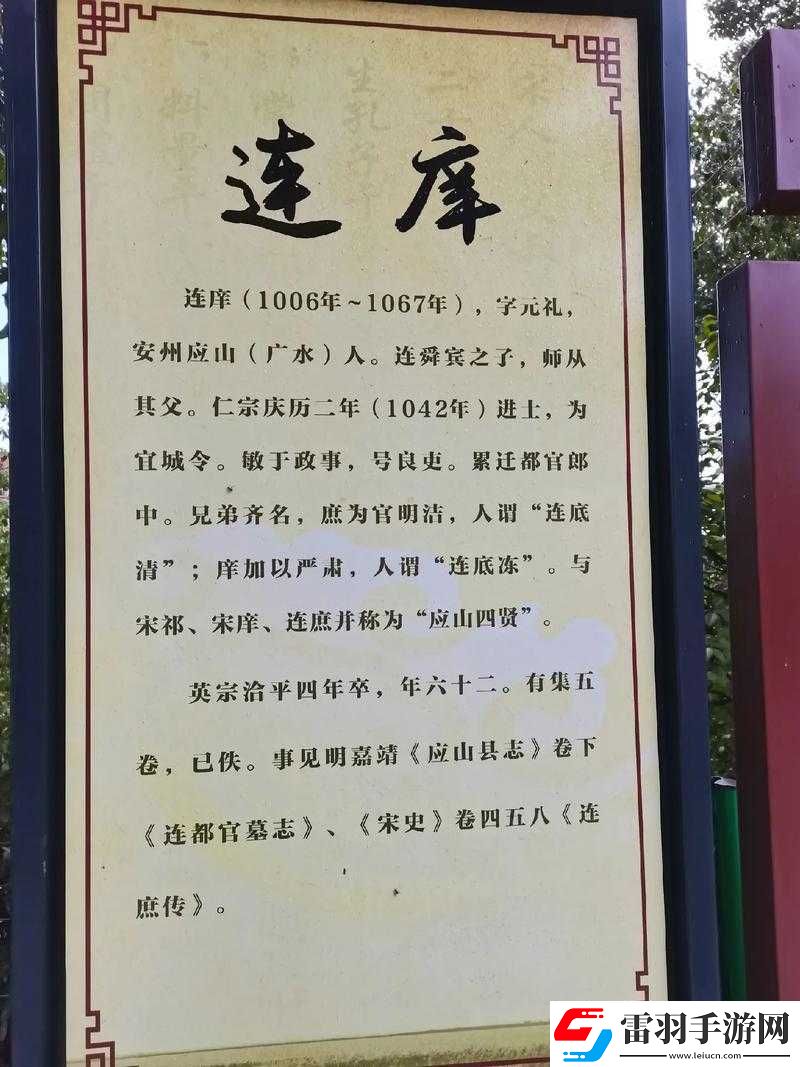 连庠
连庠（1006年～1067年），字元礼，
安州应山（广水）人。连舜宾之子，师从
其父。仁宗庆历二年（1042年）进士，为
宜城令。敏于政事，号良吏。累迁都官郎
中。兄弟齐名，庶为官明洁，人谓“连底
清”；庠加以严肃，人谓“连底冻”。与
宋祁、宋庠、连庶并称为“应山四贤”。
英宗治平四年卒，年六十二。有集五
卷，已佚。事见明嘉靖《应山县志》卷下
《连都官墓志》、《宋史》卷四五八《连
庶传》。
雷羽手游网
www.leiucn.com